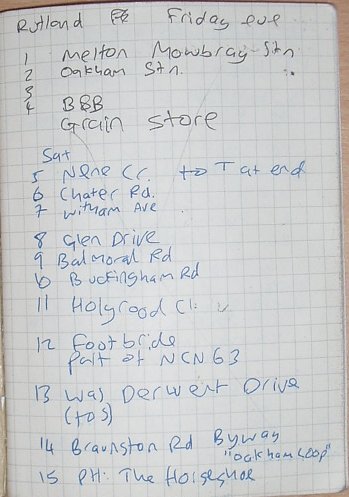 Rutland Friday eve
1 Melton Mowbray Stn
2 Oakham Stn.
3
4 B&B
Grain Store
Sat
5 Nene Cr. to T at end
6 Chater Rd.
7 Witham Ave
8 Glen Drive
9 Balmoral Rd
10 Buckingham Rd
11 Holyrood Cl.
12 Footbride
part of NCN 63
13 was Derwent Drive
(to S)
14 Braunston Rd Byway
"oakham loop"
15 PH: The Horseshoe